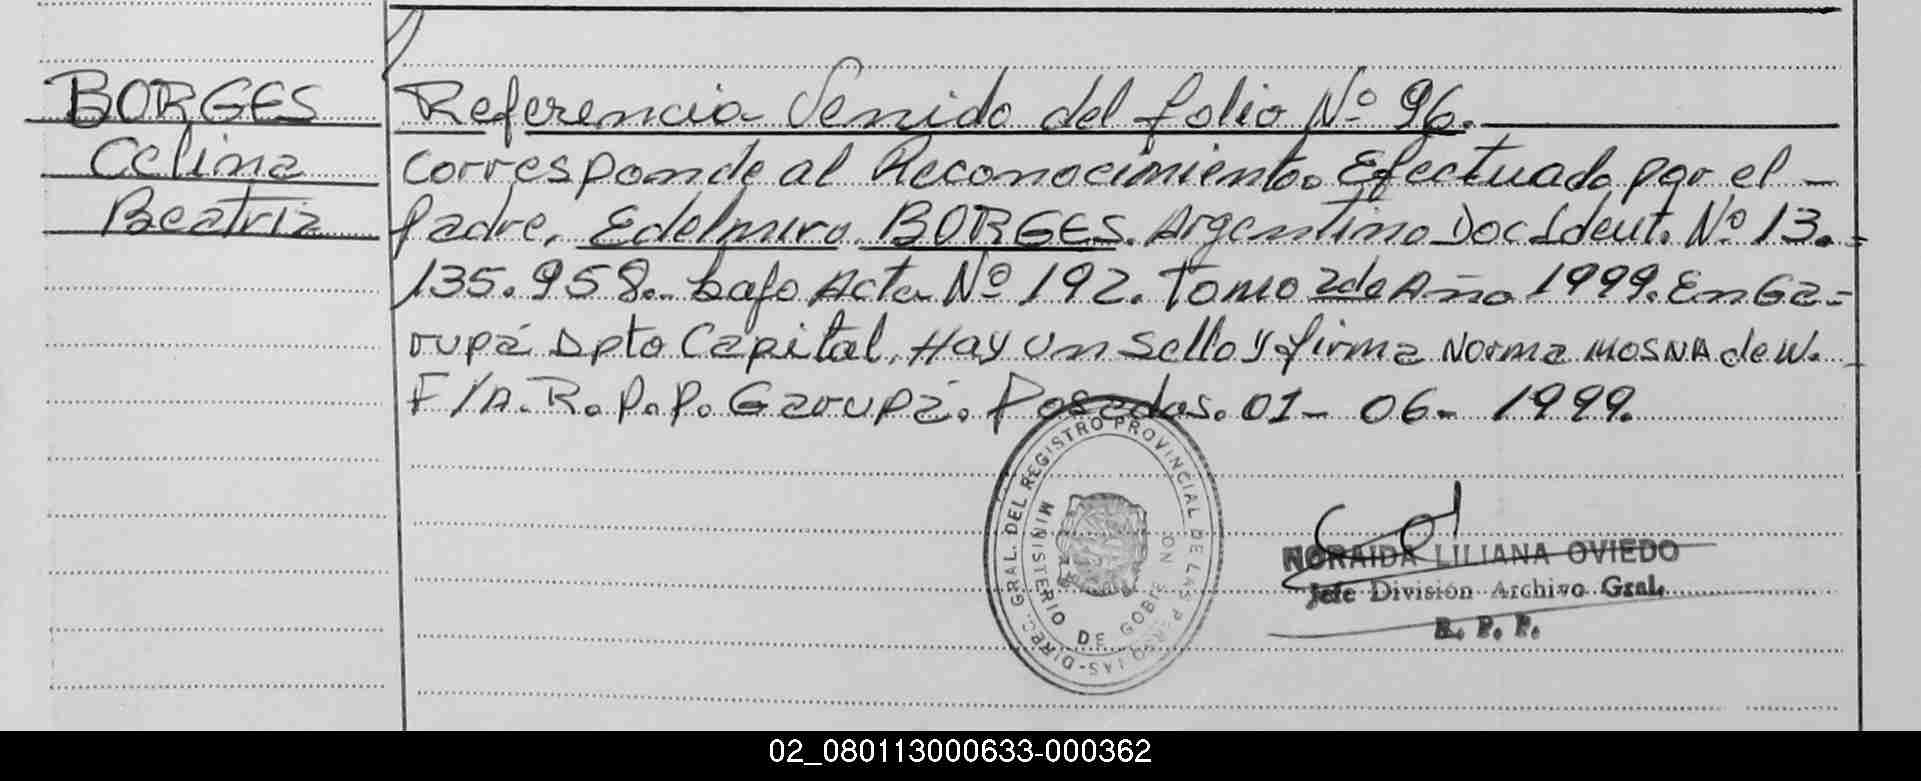 BORGES
Celina
Beatriz
Referencia Venido del folio Nº 96.
Corresponde al Reconocimiento. Efectuado por el -
Padre, Edelmiro BORGES. Argentino Doc Ident. Nº 13.-
135.958. bajo Acta Nº 192. Tomo 2de Año 1999. En Ga-
rupá Dpto Capital, Hay un Sello y firma Norma MOSNA de W. -
F/A. R. P. P. Garupá. Posadas. 01- 06- 1999.
DIREC. GRAL. DEL REGISTRO PROVINCIAL DE LAS PERSONAS-
MINISTERIO DE GOBIERNO
NORAIDA LILIANA OVIEDO
Jefe División Archivo Gral.
R. P. P.
02_080113000633-000362